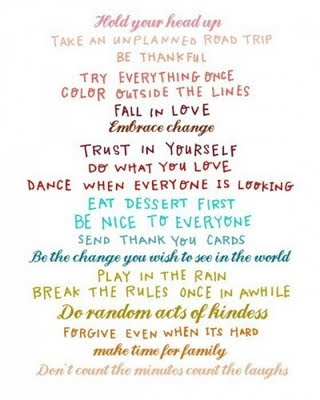 Hold your head up
TAKE AN UNPLANNED ROAD TRIP
BE THANKFUL
TRY EVERYTHING ONCE
COLOR OUTSIDE THE LINES
FALL IN LOVE
Embrace change
TRUST IN YOURSELF
DO WHAT YOU LOVE
DANCE WHEN EVERYONE IS LOOKING
EAT DESSERT FIRST
BE NICE TO EVERYONE
SEND THANK YOU CARDS
Be the change you wish to see in the world
PLAY IN THE RAIN
BREAK THE RULES ONCE IN AWHILE
Do random acts of kindess
FORGIVE EVEN WHEN ITS HARD
make time for family
Don't count the minutes count the laughs